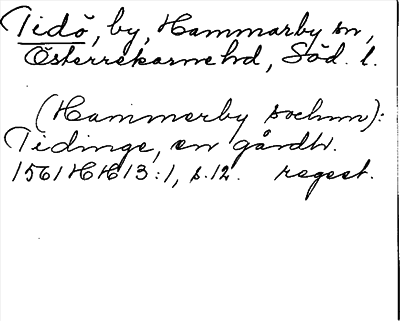 Tidö, by, Hammarby sn,
Österrekarne hd, Söd. l.
(Hammerby sochnn):
Tidinge, en gårdtr.
1561 HH 13:1, s. 12. regest.